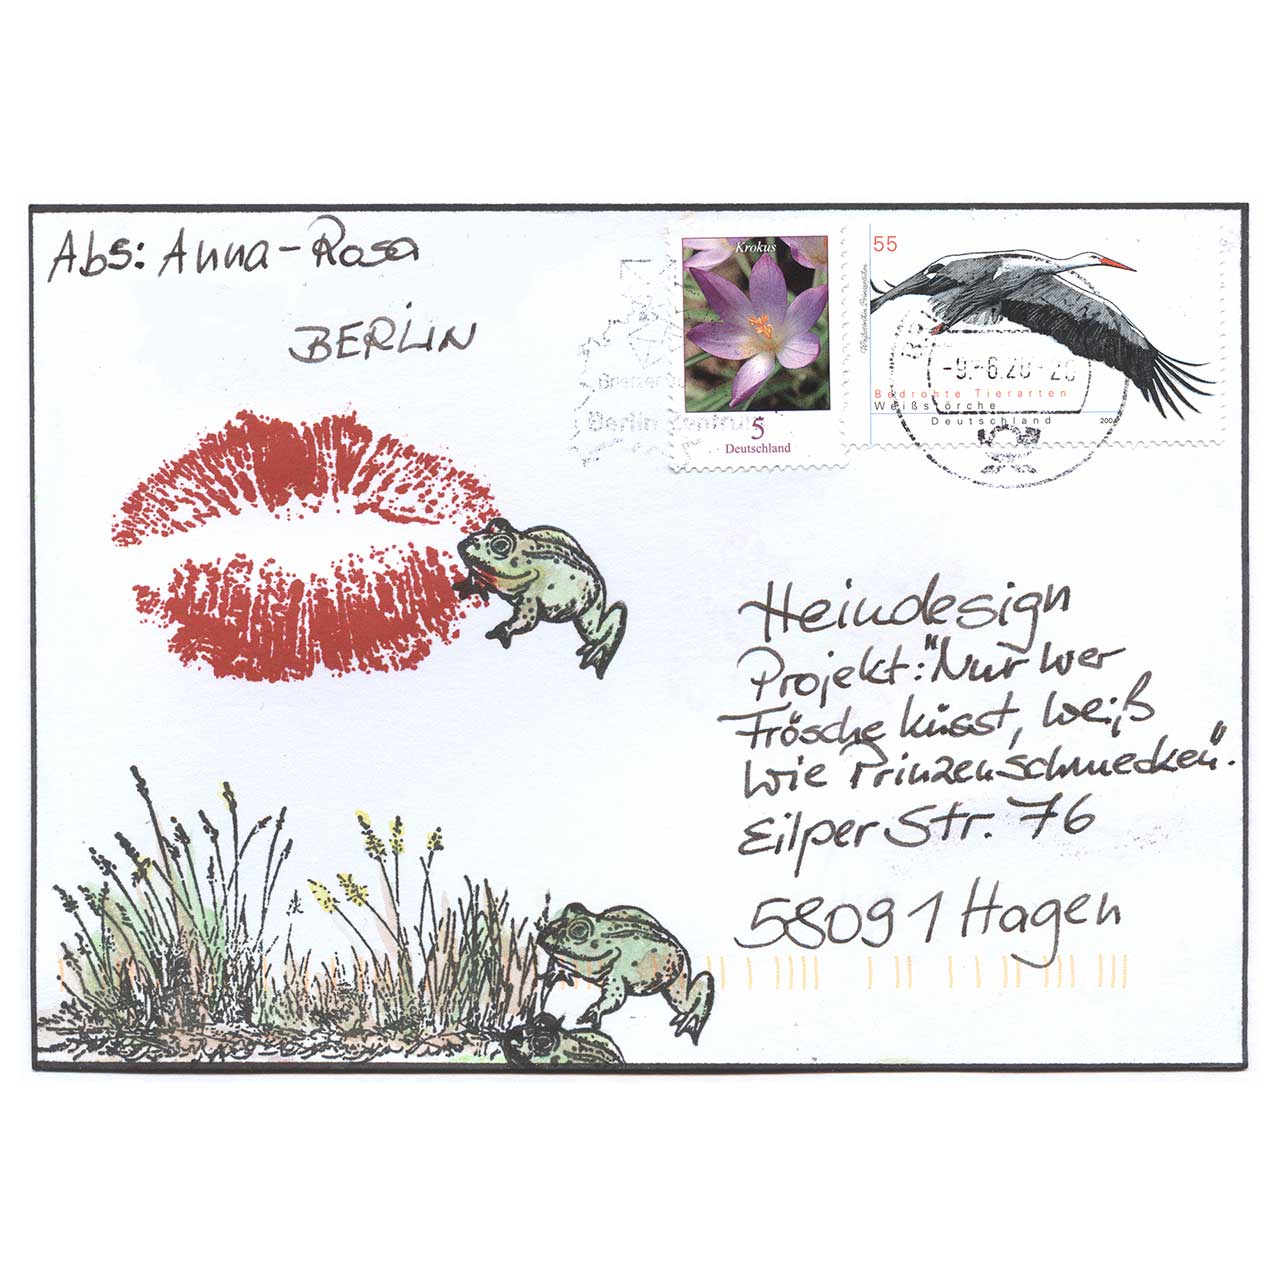 Abs: Anna-Rosa
BERLIN
Krokus
5
Deutschland
55
Bedrohte Tierarten
Weißstörche
Deutschland
-9.-6.20-20
Briefzentrum
Berlin Zentrum
Heindesign
Projekt: "Nur wer
Frösche küsst, weiß
wie Prinzen schmecken".
Eilper Str. 76
58091 Hagen